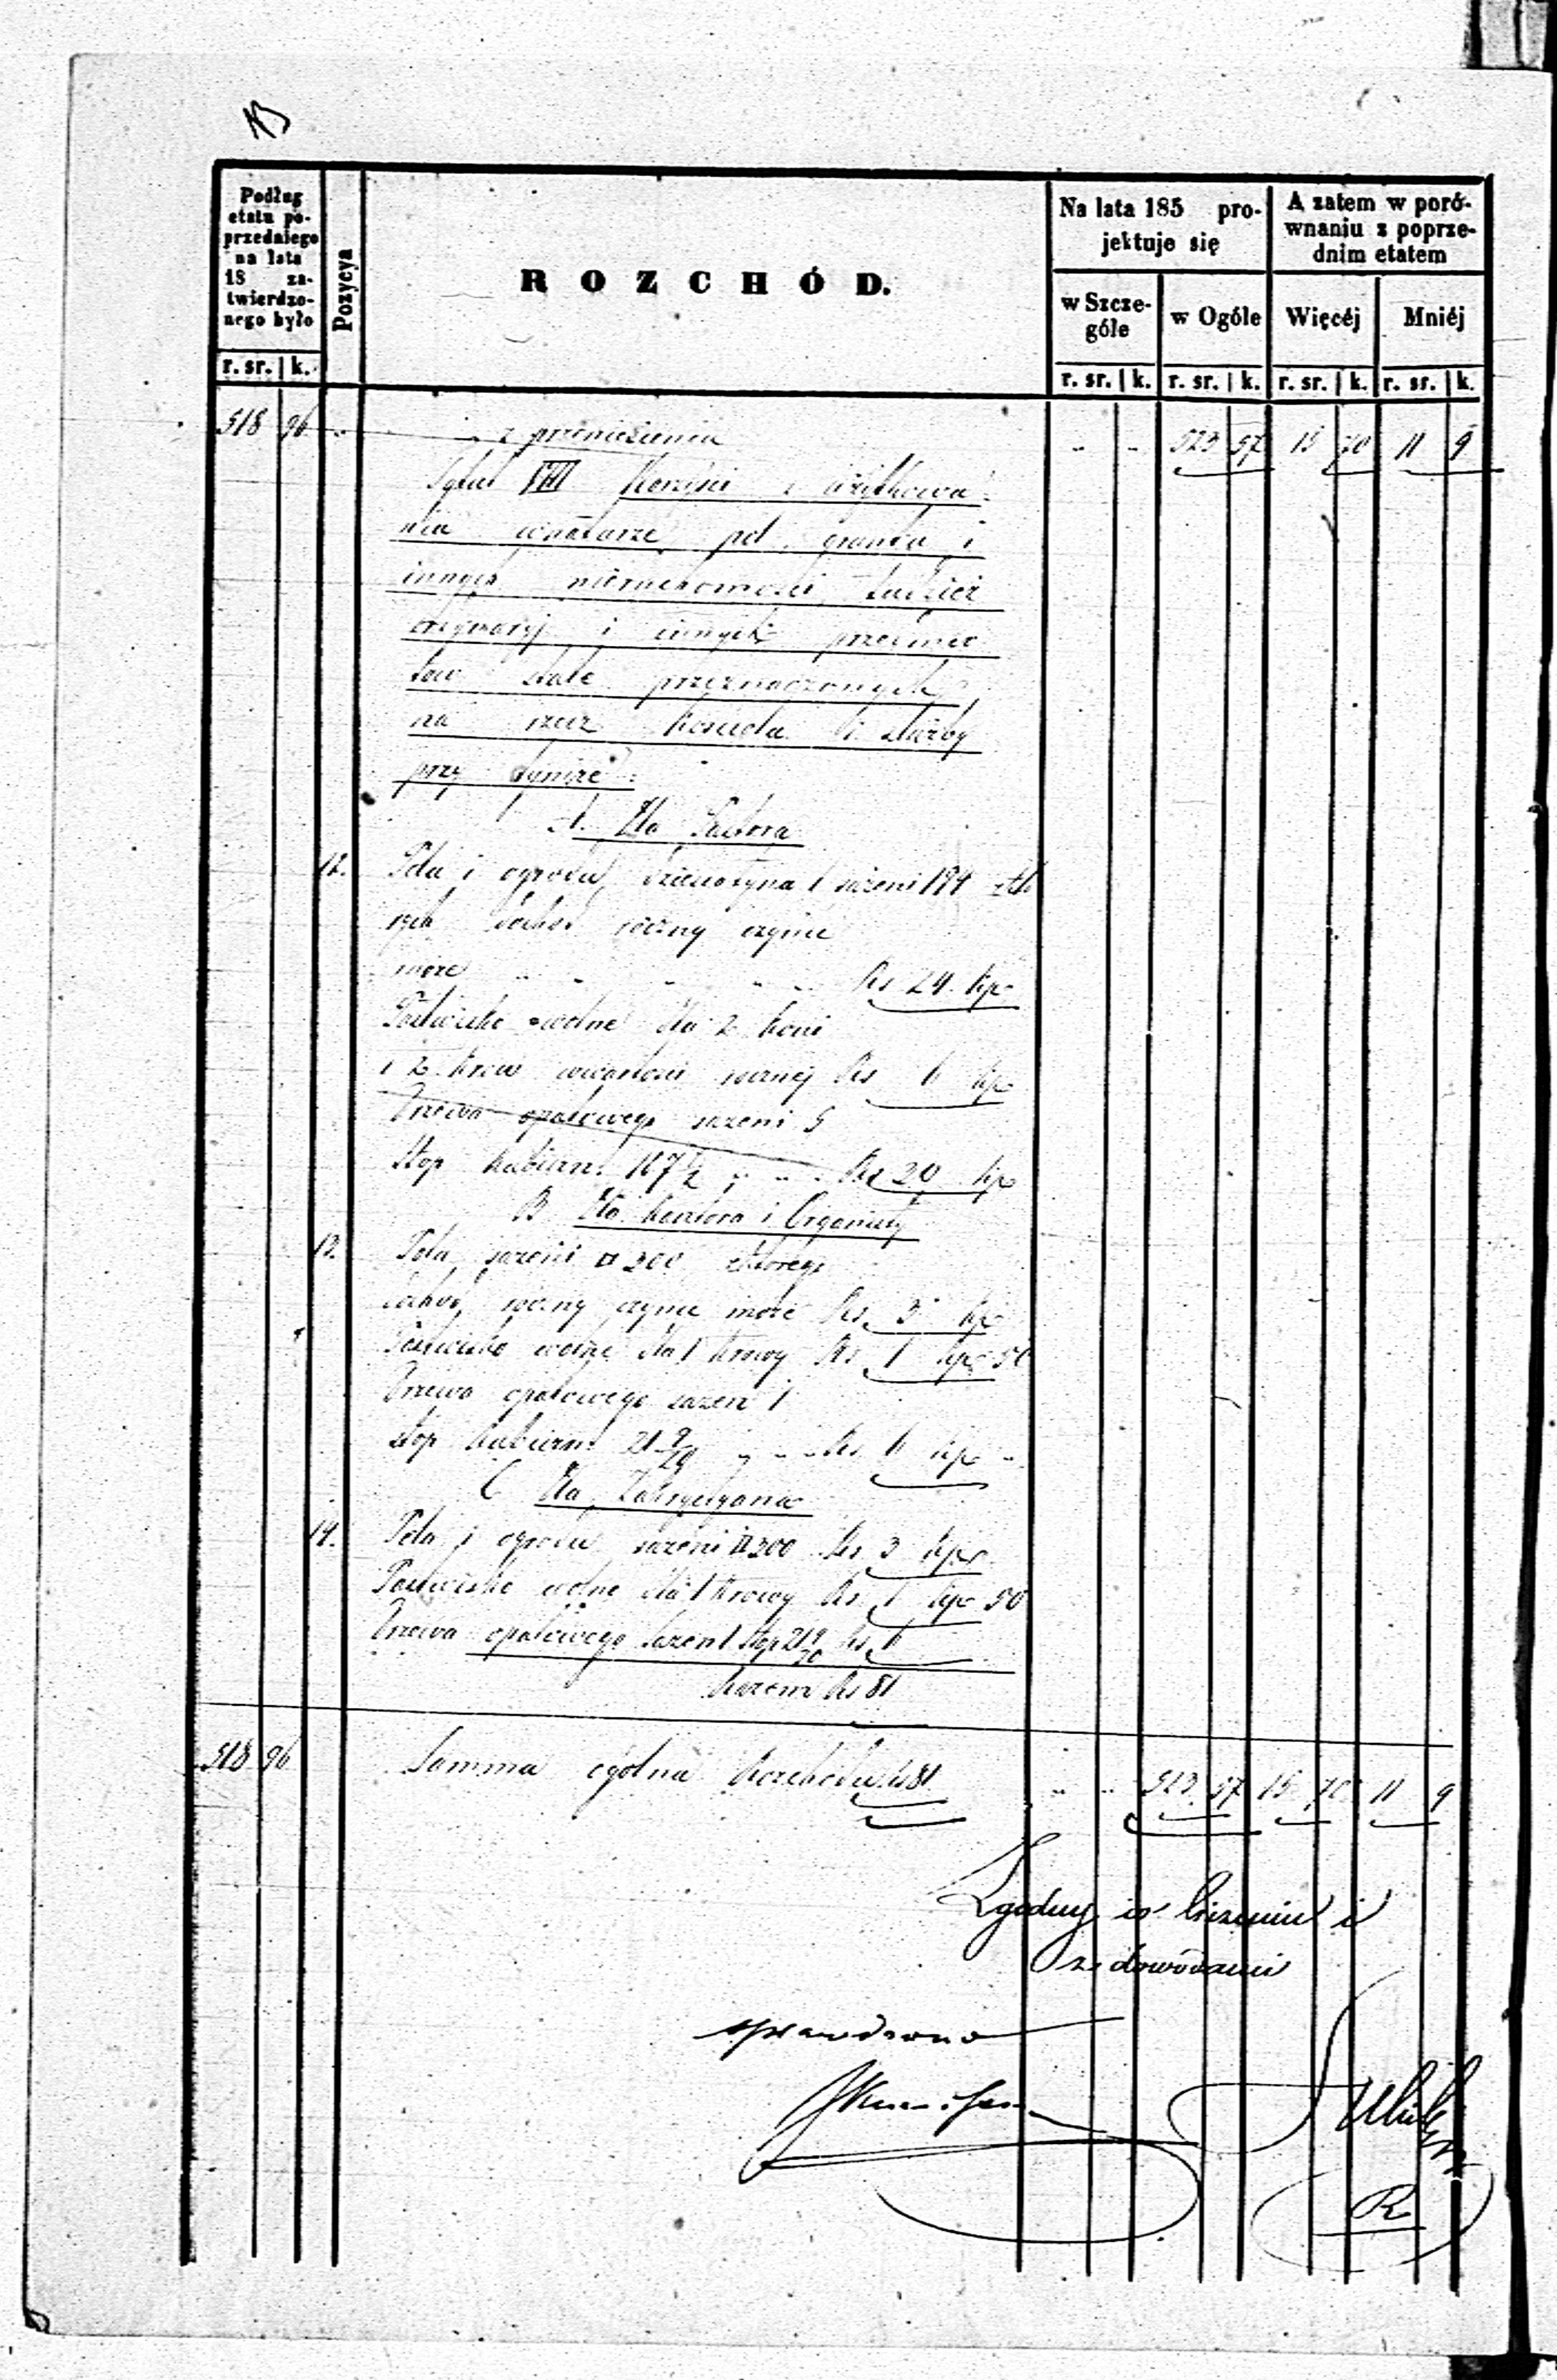 Podług
etatu po-
przedniego
na lata
18 za-
twierdzo-
nego było
r. sr. k.
Pozycya
ROZCHÓD.
Na lata 185 pro-
jektuje się
w Szcze-
góle
w Ogóle
r. sr. k. r. sr. k.
A zatem w poró-
wnaniu z poprze-
dnim etatem
Więcéj
Mniéj
r. sr. k. r. sr. k.
518 96 z przeniesienia 523 57 15 70 11 9
Tytuł VIII Korzyści z użytkowa-
nia w naturze pól, gruntu i
innych nieruchomości tudzież
ordynaryj i innych przedmio
tów stale przeznaczonych
na rzecz kościoła i służby
przy tymże
A. Dla Pastora
12. Pola i ogrodu, dziesiatyna 1 sażeni 194 któ
rych dochód roczny czynić
może Rs 24 kp
Pastwisko wolne dla 2 koni
i 2 krów wartości rocznej Rs 6 kp
Drzewa opałowego sażeni 5
stop kubicz. 107 1/2 Rs 20 kp
B Dla Kantora i Organisty
13. Pola sażeni □ 300 którego
dochód roczny czynić może Rs 3 kp
Pastwisko wolne dla 1 krowy Rs 1 kp 50
Drzewa opałowego sażeń 1
stop kubiczn. 21 9/20 Rs 6 kp
C Dla Zakrystyana
14. Pola i ogrodu sażeni □ 300 Rs 3 kp
Pastwisko wolne dla 1 krowy Rs 1 kp 50
Drzewa opałowego sażeń 1 stóp 21 9/20 Rs 6
Razem Rs 81
518 96 Summa ogólna Rozchodu Rs 81 523 57 15 70 11 9
Zgodny co liczenia i
z dowodami
sprawdzono
R